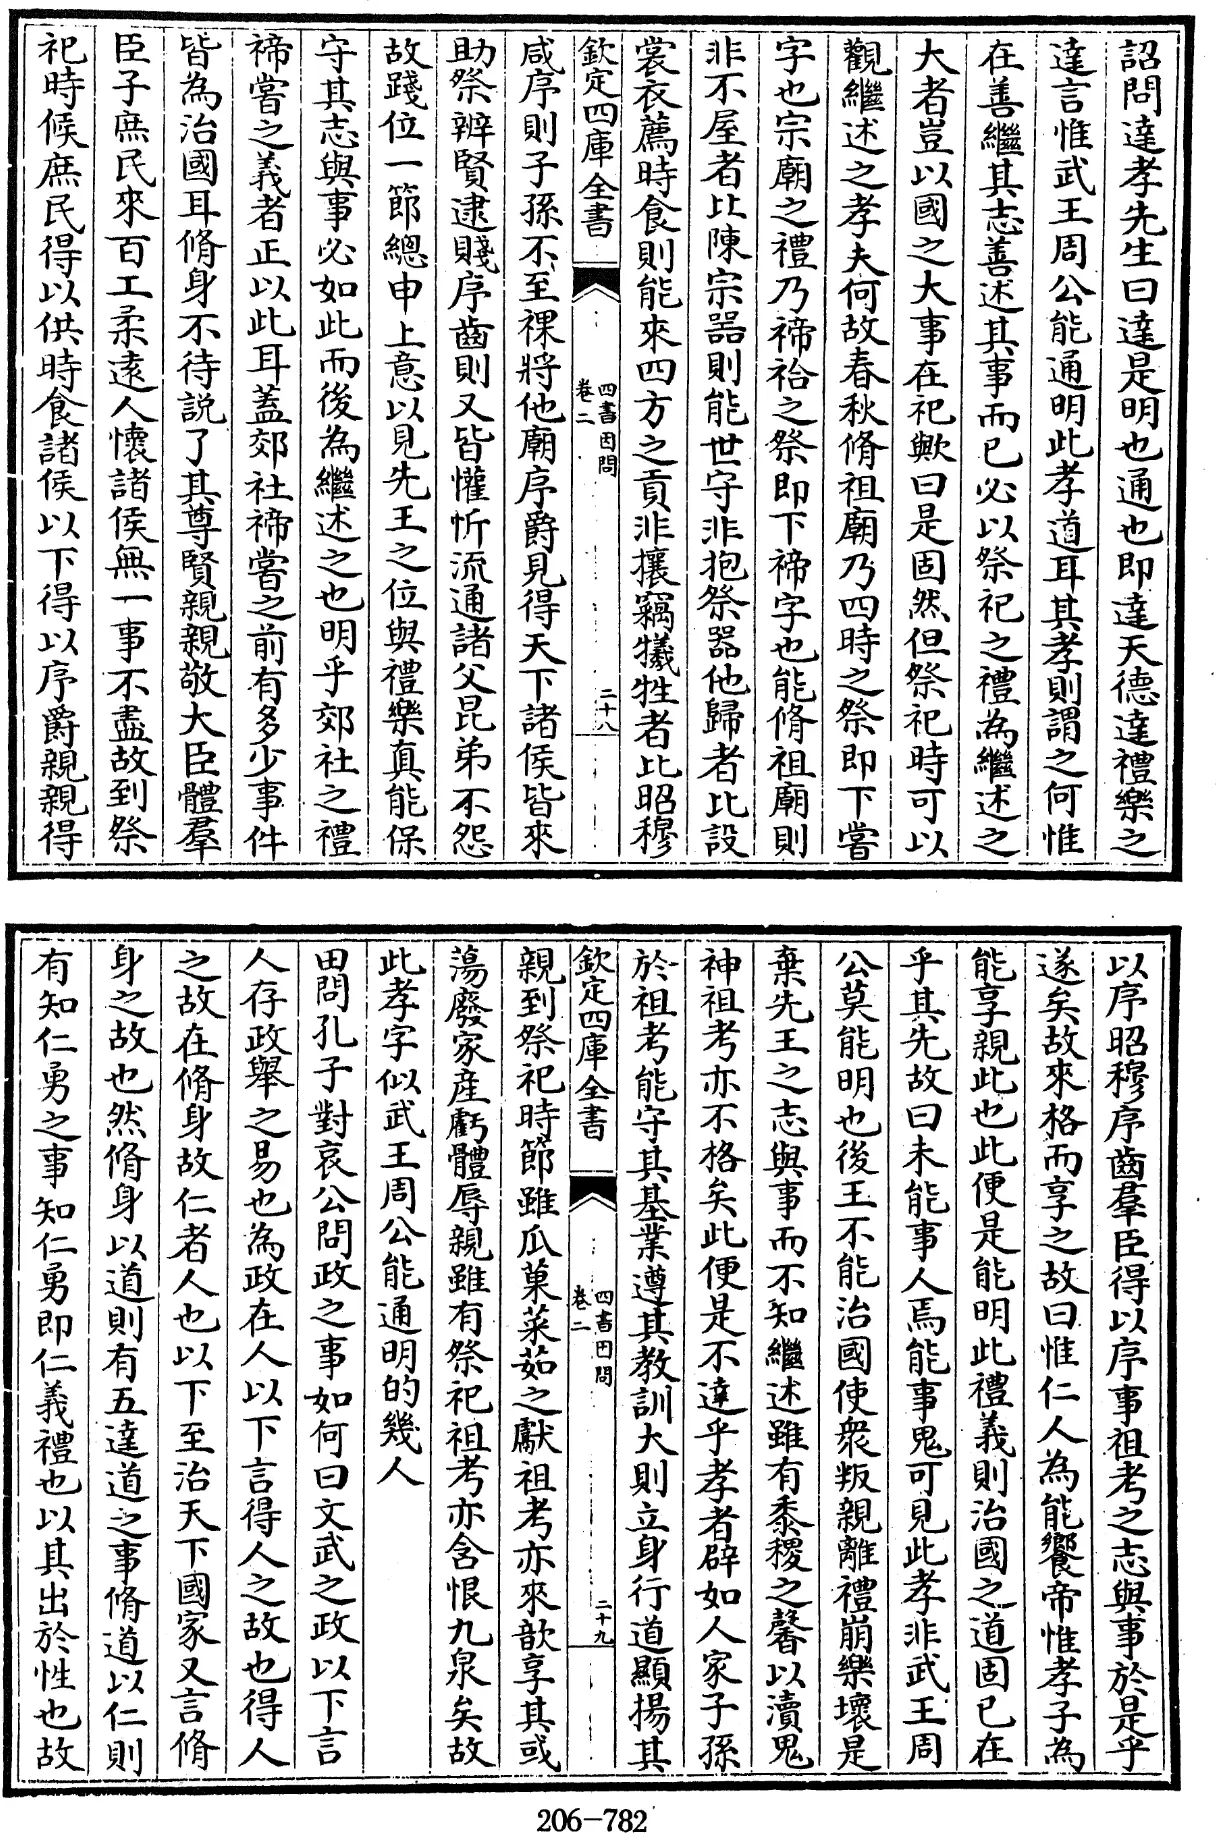 詔問達孝先生曰達是明也通也即達天德達禮樂之
達言惟武王周公能通明此孝道耳其孝則謂之何惟
在善繼其志善述其事而已必以祭祀之禮為繼述之
大者豈以國之大事在祀歟曰是固然但祭祀時可以
觀繼述之孝夫何故春秋脩祖廟乃四時之祭即下嘗
字也宗廟之禮乃禘祫之祭即下禘字也能脩祖廟則
非不屋者比陳宗器則能世守非抱祭器他歸者比設
裳衣薦時食則能來四方之貢非攘竊犧牲者比昭穆
欽定四庫全書
四書因問
卷二
二十八
咸序則子孫不至祼將他廟序爵見得天下諸侯皆來
助祭辨賢逮賤序齒則又皆懽忻流通諸父昆弟不怨
故踐位一節總申上意以見先王之位與禮樂真能保
守其志與事必如此而後為繼述之也明乎郊社之禮
禘嘗之義者正以此耳蓋郊社禘嘗之前有多少事件
皆為治國耳脩身不待説了其尊賢親親敬大臣體羣
臣子庶民來百工柔遠人懷諸侯無一事不盡故到祭
祀時候庶民得以供時食諸侯以下得以序爵親親得
以序昭穆序齒羣臣得以序事祖考之志與事於是乎
遂矣故來格而享之故曰惟仁人為能饗帝惟孝子為
能享親此也此便是能明此禮義則治國之道固已在
乎其先故曰未能事人焉能事鬼可見此孝非武王周
公莫能明也後王不能治國使衆叛親離禮崩樂壞是
棄先王之志與事而不知繼述雖有黍稷之馨以瀆鬼
神祖考亦不格矣此便是不達乎孝者辟如人家子孫
於祖考能守其基業遵其教訓大則立身行道顯揚其
欽定四庫全書
四書因問
卷二
二十九
親到祭祀時節雖瓜菓菜茹之獻祖考亦來歆享其或
蕩廢家産虧體辱親雖有祭祀祖考亦含恨九泉矣故
此孝字似武王周公能通明的幾人
田問孔子對哀公問政之事如何曰文武之政以下言
人存政舉之易也為政在人以下言得人之故也得人
之故在脩身故仁者人也以下至治天下國家又言脩
身之故也然脩身以道則有五達道之事脩道以仁則
有知仁勇之事知仁勇即仁義禮也以其出於性也故
206-782